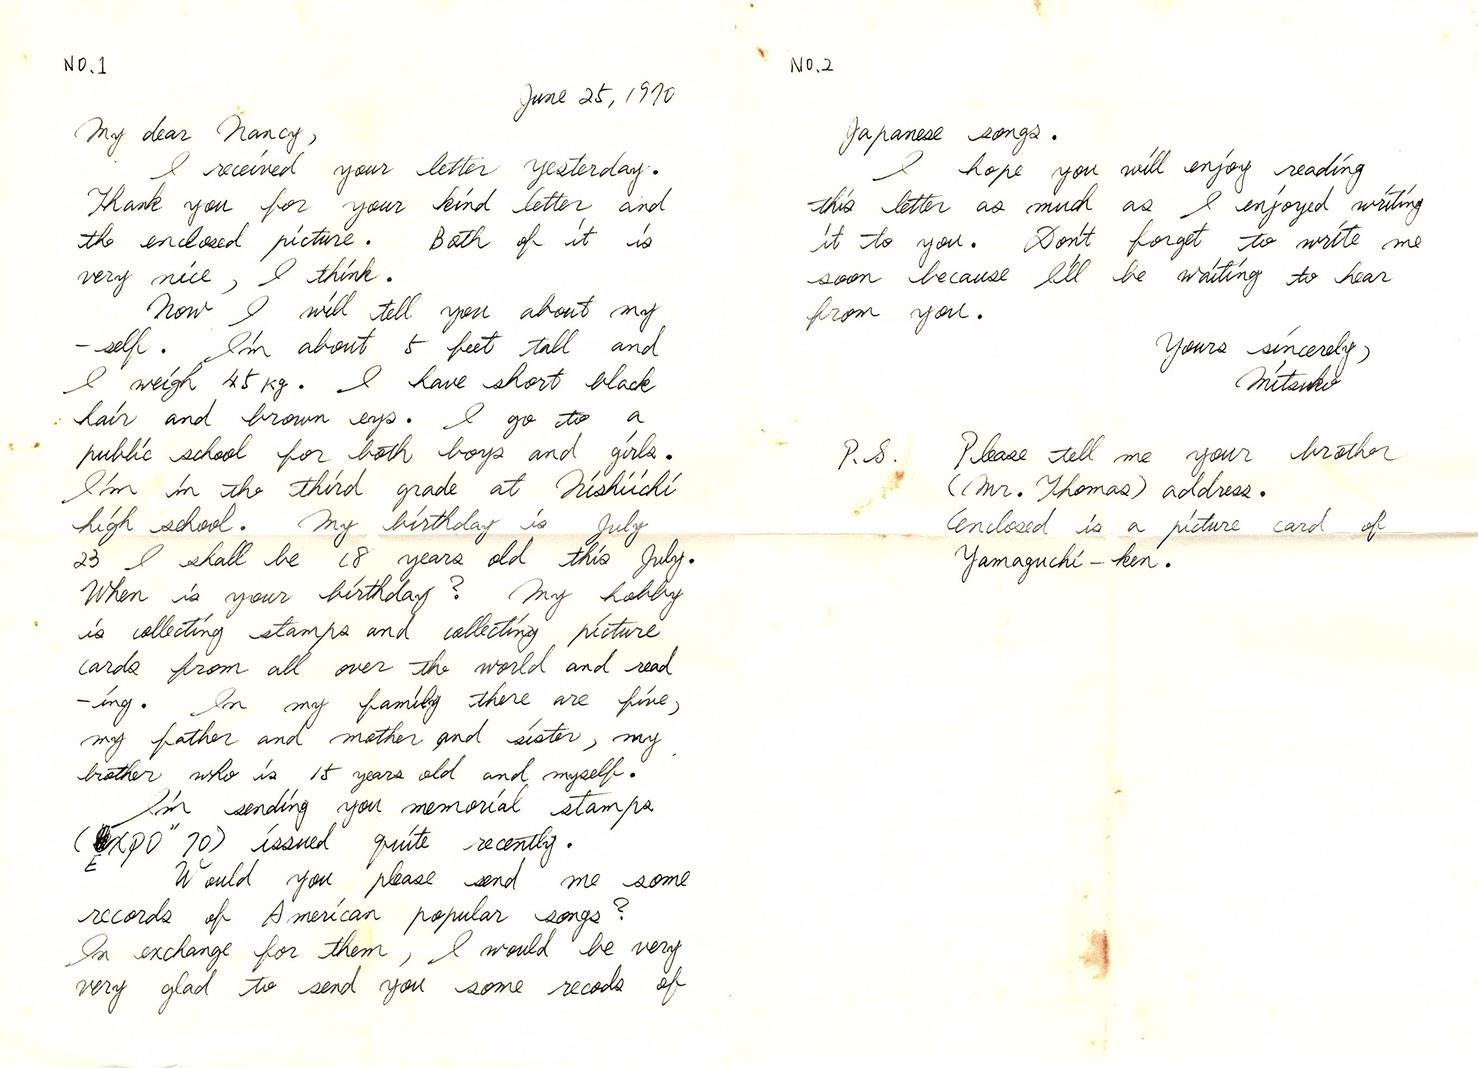 NO.1
June 25, 1970
My dear Nancy,
I received your letter yesterday.
Thank you for your kind letter and
the enclosed picture. Both of it is
very nice, I think.
Now I will tell you about my
-self. I'm about 5 feet tall and
I weigh 45 kg. I have short black
hair and brown eys. I go to a
public school for both boys and girls.
I'm in the third grade at Nishiichi
high school. My birthday is July
23 I shall be 18 years old this July.
When is your birthday? My hobby
is collecting stamps and collecting picture
cards from all over the world and read
-ing. In my family there are five,
my father and mother and sister, my
brother who is 15 years old and myself.
I'm sending you memorial stamps
(EXPO" 70) issued quite recently.
Would you please send me some
records of American popular songs?
In exchange for them, I would be very
very glad to send you some recods of
NO.2
Japanese songs.
I hope you will enjoy reading
this letter as much as I enjoyed writing
it to you. Don't forget to write me
soon because I'll be waiting to hear
from you.
Yours sincerely,
Mitsuko
P.S. Please tell me your brother
(Mr. Thomas) address.
Enclosed is a picture card of
Yamaguchi-ken.